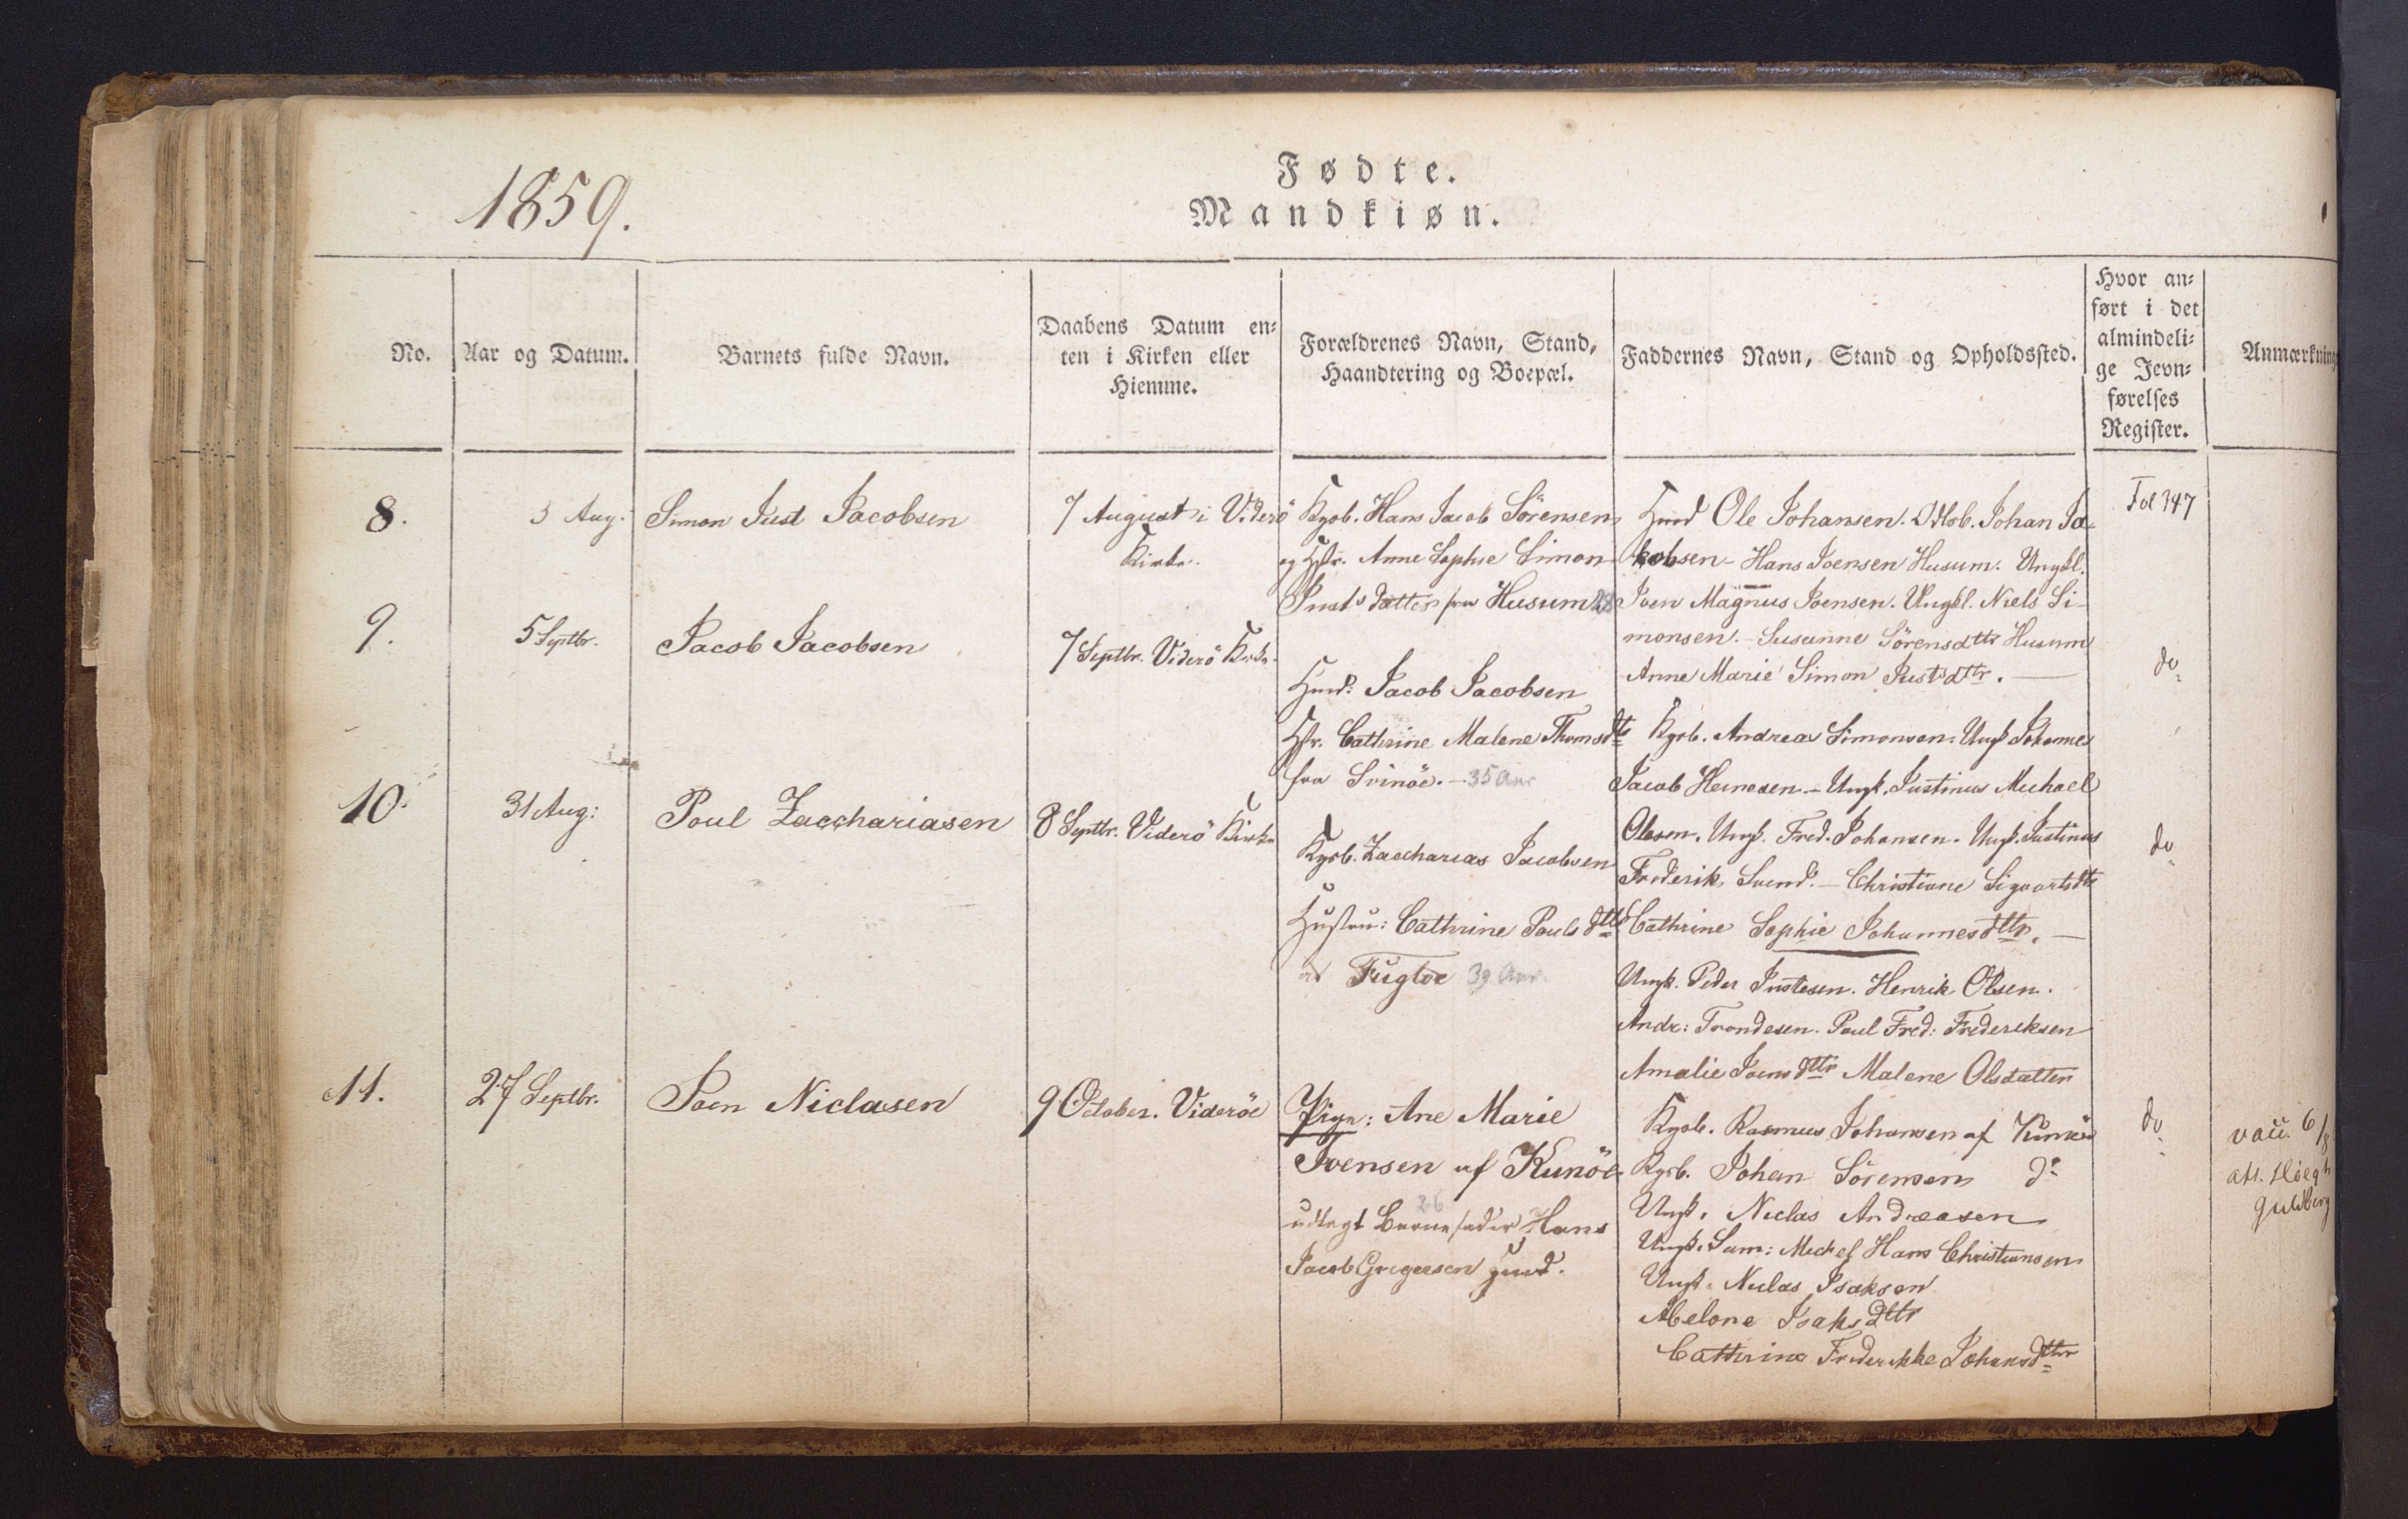 1859.
Fødte.
Mandkiøn.
No.
Aar og Datum.
Barnets fulde Navn.
Daabens Datum en-
ten i Kirken eller
Hiemme.
Forældrenes Navn, Stand,
Haandtering og Boepæl.
Faddernes Navn, Stand og Opholdssted.
Hvor an-
ført i det
almindeli-
ge Jevn-
førelses
Register.
Anmærkning
8.
3 Aug.
Simon Just Jacobsen
7 August i Viderö
Kirke.
Kgsb. Hans Jacob Sörensen
og Hstr. Anne Sophie Simon
Justs datter fra Husum 28
Huusmd Ole Johansen. Odlsb. Johan Ja-
kobsen - Hans Joensen Husum. Ungkl.
Joen Magnus Joensen. Ungkl. Niels Si-
monsen. - Susanne Sörensdttr Husum
Anne Marie Simon Justsdttr. —
Fol 347
9.
5 Septbr.
Jacob Jacobsen
7 Septbr. Viderö Kirke.
Huusmd: Jacob Jacobsen
Hstr. Cathrine Malene Thomsdtr
fra Svinöe. - 35 Aar
Kgsb. Andreas Simonsen. Ungk Johannes
Jacob Heinesen. - Ungk. Justinus Michael
Olesen. Ungk. Fred. Johansen. Ungk. Justinus
Frederik Svend. - Christiane Sigvartsdtr
Cathrine Sophie Johannesdttr. —
do
10.
31 Aug:
Poul Zacchariasen
8 Septbr. Viderö Kirke
Kgsb. Zaccharias Jacobsen
Hustru: Cathrine Pouls dttr
af Fugloe 39 Aar.
Ungk. Peder Justesen. Henrik Olsen.
Andr: Trondesen. Poul Fred: Frederiksen
Amalie Joens dttr Malene Olsdatter
do
11.
27 Septbr.
Joen Niclasen
9 October. Viderøe
Pige: Ane Marie
Joensen af Kunöe
26
udlagt Barnefader Hans
Jacob Gregersen
Kgsb. Rasmus Johansen af Kunöe
Kgsb. Johan Sörensen do
Ungk. Niclas Andreasen
Ungk. Sam: Mich ef Hans Christiansen
Ungk. Niclas Isaksen
Melone Isaks dttr
Cathrine Frederikke Johansdttr
do
vacc. 6/8
att. Høegh
Guldberg